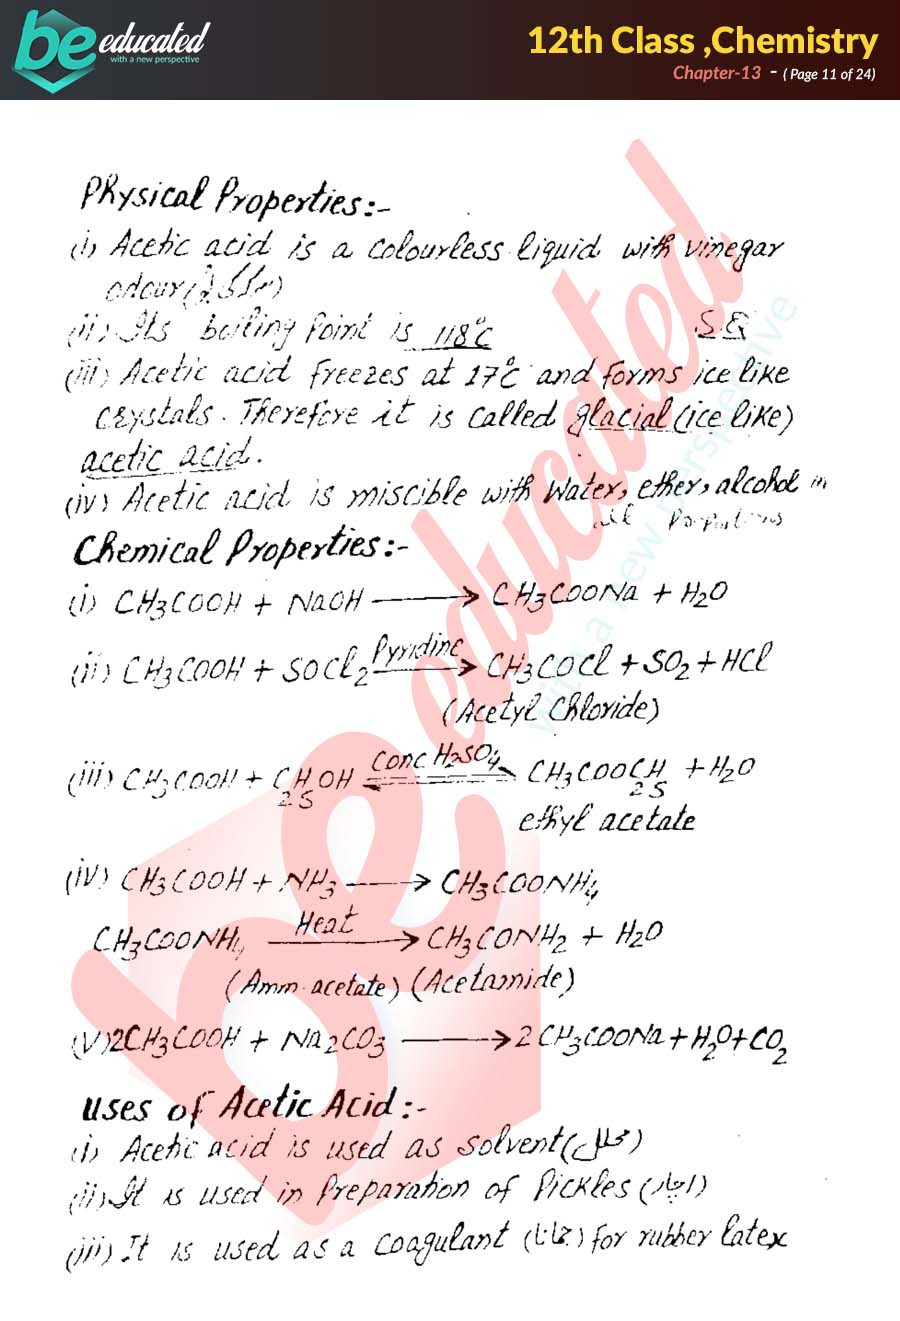 be educated
with a new perspective
12th Class ,Chemistry
Chapter-13 - ( Page 11 of 24)
Physical Properties:-
(i) Acetic acid is a colourless liquid with vinegar
odour
(ii) Its boiling Point is 118°C
(iii) Acetic acid freezes at 17°C and forms ice like
crystals. Therefore it is called glacial (ice like)
acetic acid.
(iv) Acetic acid is miscible with Water, ether, alcohol in
all Proportions
Chemical Properties:-
(i) CH3COOH + NaOH ⟶ CH3COONa + H2O
(ii) CH3COOH + SOCl2 Pyridine ⟶ CH3COCl + SO2 + HCl
(Acetyl Chloride)
(iii) CH3COOH + C2H5OH Conc H2SO4 ⇌ CH3COOC2H5 + H2O
ethyl acetate
(iv) CH3COOH + NH3 ⟶ CH3COONH4
CH3COONH4 Heat ⟶ CH3CONH2 + H2O
(Amm. acetate) (Acetamide)
(V) 2CH3COOH + Na2CO3 ⟶ 2CH3COONa + H2O + CO2
Uses of Acetic Acid:-
(i) Acetic acid is used as solvent
(ii) It is used in Preparation of Pickles (اچار)
(iii) It is used as a coagulant for rubber latex
be educated
with a new perspective